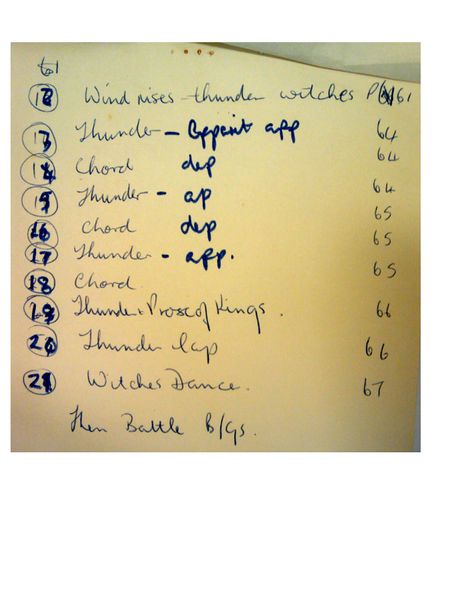 12 Wind rises - thunder witches P 61
13 Thunder - app 64
14 Chord dep 64
15 Thunder - ap 64
16 Chord dep 65
17 Thunder - app. 65
18 Chord. 65
19 Thunder + Prosc of Kings. 66
20 Thunder clap 66
21 Witches Dance. 67
Then Battle B/Gs.